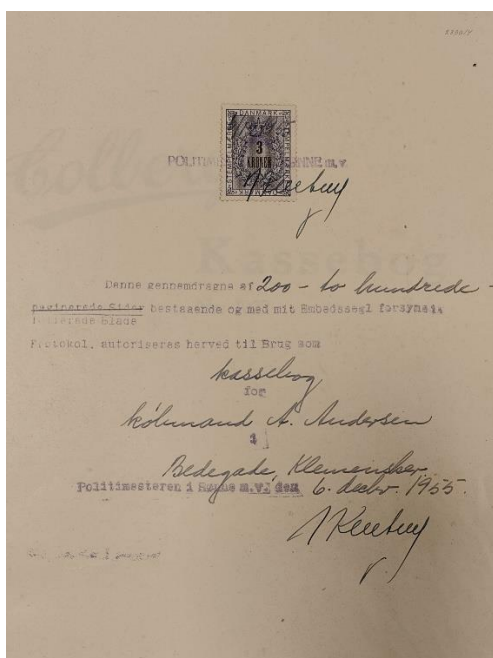 DANMARK
3
KRONER
POLITIM RØNNE m.v.
Kassebog
Denne gennemdragne af 200 - to hundrede -
paginerede Sider bestaaende og med mit Embedssegl forsynede
folierede Blade
Protokol, autoriseres herved til Brug som
kassebog
for
købmand A. Andersen
i
Bedegade, Klemensker
Politimesteren i Rønne m.v. den 6. decbr. 1955.